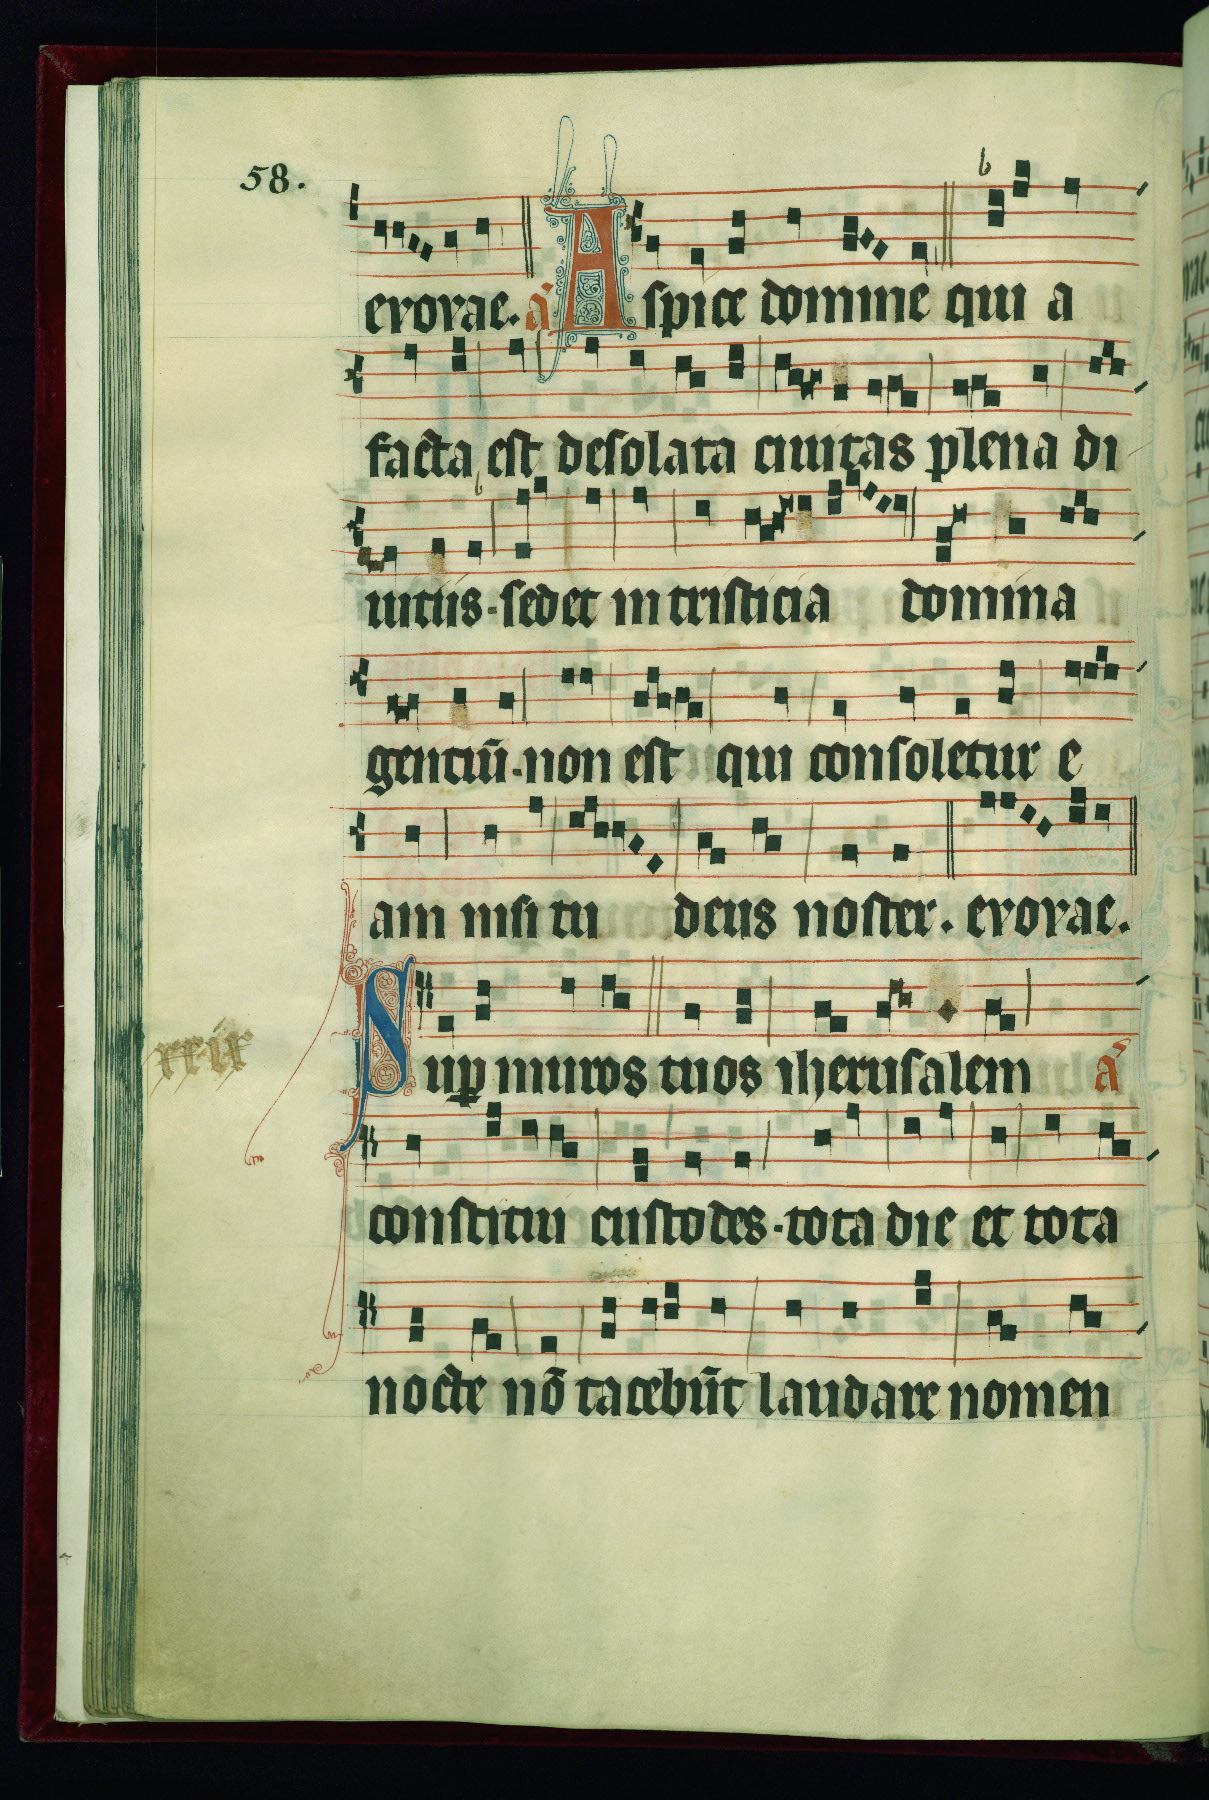 58.
b
evovae. a̅ Aspice domine qui a
facta est desolata ciuitas plena di
b
uitiis. sedet in tristicia domina
gentiū. non est qui consoletur e
am nisi tu deus noster. evovae.
Suꝑ muros tuos iherusalem a̅
xxix
constitui custodes. tota die et tota
nocte nō tacebūt laudare nomen